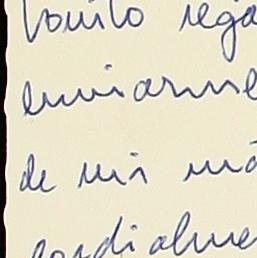 bonito rega
enviarme
de mis má
cordialme